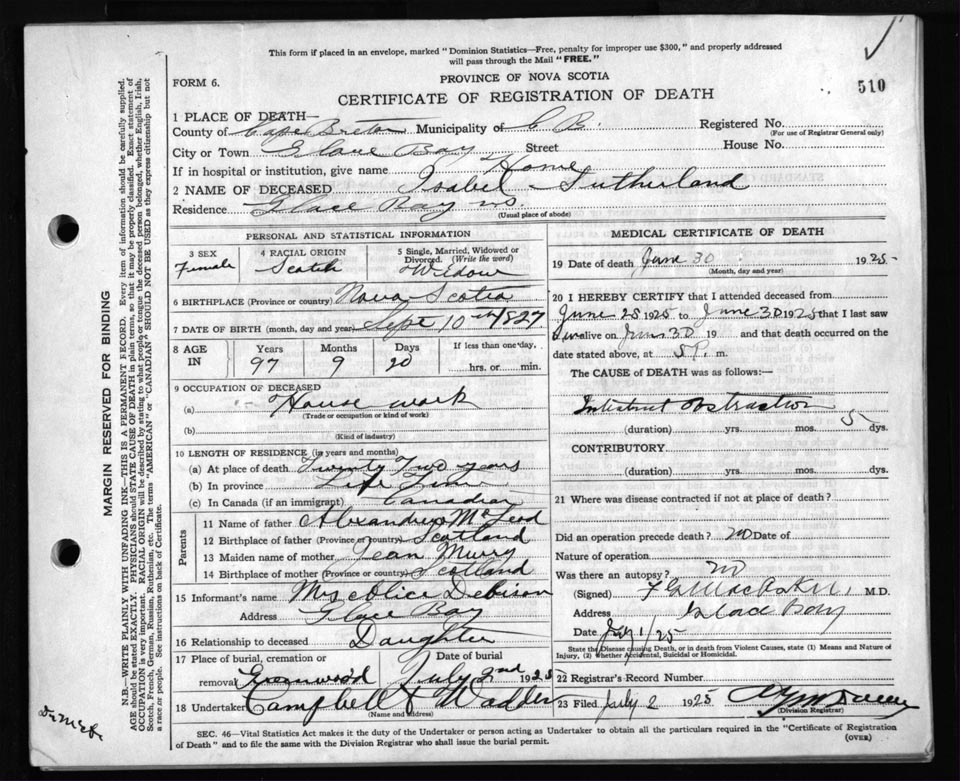 This form if placed in an envelope, marked "Dominion Statistics—Free, penalty for improper use $300," and properly addressed
will pass through the Mail "FREE."
FORM 6.
PROVINCE OF NOVA SCOTIA
510
CERTIFICATE OF REGISTRATION OF DEATH
1 PLACE OF DEATH—
County of Cape Breton Municipality of C B. Registered No.
(For use of Registrar General only)
City or Town Glace Bay Street House No.
If in hospital or institution, give name Home
2 NAME OF DECEASED Isabel Sutherland
Residence Glace Bay NS.
(Usual place of abode)
PERSONAL AND STATISTICAL INFORMATION
3 SEX
Female
4 RACIAL ORIGIN
Scotch
5 Single, Married, Widowed or
Divorced. (Write the word)
Widow
6 BIRTHPLACE (Province or country) Nova Scotia
7 DATE OF BIRTH (month, day and year) Sept 10th 1827
8 AGE IN
Years Months Days If less than one day,
97 9 20 hrs. or min.
9 OCCUPATION OF DECEASED
(a) House work
(Trade or occupation or kind of work)
(b)
(Kind of industry)
10 LENGTH OF RESIDENCE (in years and months)
(a) At place of death Twenty Two years
(b) In province Life Time
(c) In Canada (if an immigrant) Canadian
Parents
11 Name of father Alexander McLeod
12 Birthplace of father (Province or country) Scotland
13 Maiden name of mother Jean Murry
14 Birthplace of mother (Province or country) Scotland
15 Informant's name Mrs Alice
Address Glace Bay
16 Relationship to deceased Daughter
17 Place of burial, cremation or Date of burial
removal Greenwood July 2nd 1925
18 Undertaker Campbell & Madden
(Name and address)
MEDICAL CERTIFICATE OF DEATH
19 Date of death June 30 1925
(Month, day and year)
20 I HEREBY CERTIFY that I attended deceased from
June 25 1925 to June 30 1925 that I last saw
alive on June 30 19 and that death occurred on
date stated above, at 5 P. m.
The CAUSE of DEATH was as follows:—
obstruction
(duration) yrs. mos. 5 dys.
CONTRIBUTORY
(duration) yrs. mos. dys.
21 Where was disease contracted if not at place of death?
Did an operation precede death? no Date of
Nature of operation
Was there an autopsy? no
(Signed) M.D.
Address Glace Bay
Date July 1/25
State the Disease causing Death, or in death from Violent Causes, state (1) Means and Nature of
Injury, (2) whether Accidental, Suicidal or Homicidal.
22 Registrar's Record Number
23 Filed July 2 1925
(Division Registrar)
SEC. 46—Vital Statistics Act makes it the duty of the Undertaker or person acting as Undertaker to obtain all the particulars required in the "Certificate of Registration
of Death" and to file the same with the Division Registrar who shall issue the burial permit.
(OVER)
MARGIN RESERVED FOR BINDING
N.B.—WRITE PLAINLY WITH UNFADING INK—THIS IS A PERMANENT RECORD. Every item of information should be carefully supplied.
AGE should be stated EXACTLY. PHYSICIANS should STATE CAUSE OF DEATH in plain terms, so that it may be properly classified. Exact statement of
OCCUPATION is very important. RACIAL ORIGIN will be described by stating to what people or tongue the deceased person belonged, whether English, Irish,
Scotch, French, German, Russian, Ruthenian, etc. The terms "AMERICAN" or "CANADIAN" SHOULD NOT BE USED as they express citizenship but not
a race or people. See instructions on back of Certificate.